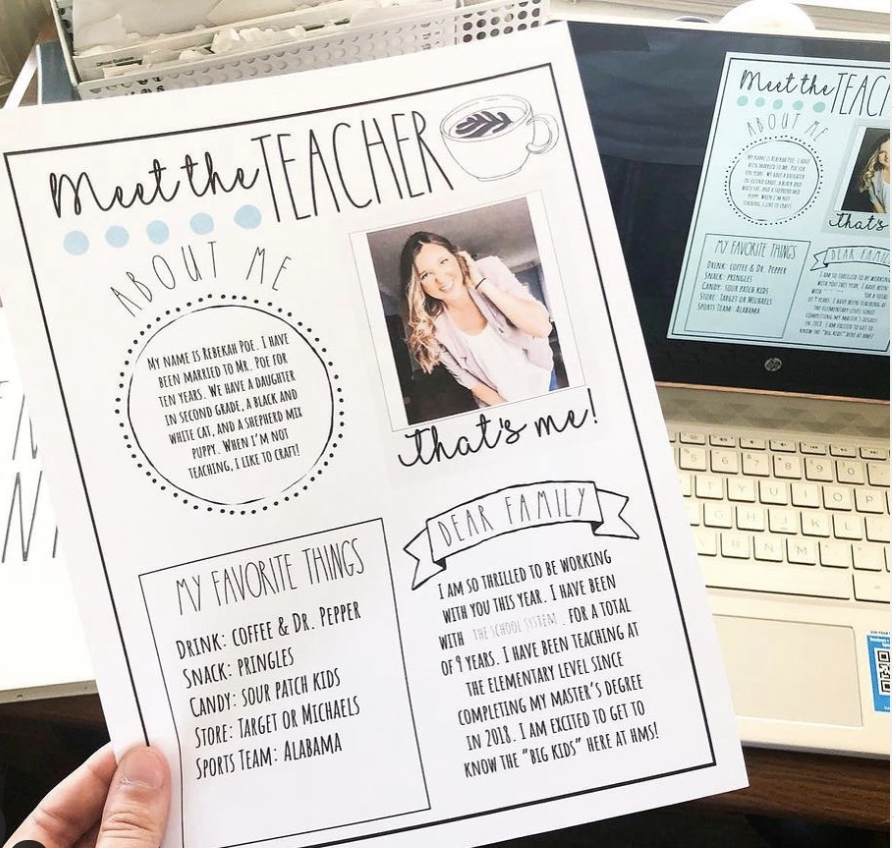 Meet the TEACHER
ABOUT ME
MY NAME IS REBEKAH POE. I HAVE
BEEN MARRIED TO MR. POE FOR
TEN YEARS. WE HAVE A DAUGHTER
IN SECOND GRADE, A BLACK AND
WHITE CAT, AND A SHEPHERD MIX
PUPPY. WHEN I'M NOT
TEACHING, I LIKE TO CRAFT!
that's me!
MY FAVORITE THINGS
DRINK: COFFEE & DR. PEPPER
SNACK: PRINGLES
CANDY: SOUR PATCH KIDS
STORE: TARGET OR MICHAELS
SPORTS TEAM: ALABAMA
DEAR FAMILY
I AM SO THRILLED TO BE WORKING
WITH YOU THIS YEAR. I HAVE BEEN
WITH THE SCHOOL SYSTEM . FOR A TOTAL
OF 9 YEARS. I HAVE BEEN TEACHING AT
THE ELEMENTARY LEVEL SINCE
COMPLETING MY MASTER'S DEGREE
IN 2018. I AM EXCITED TO GET TO
KNOW THE "BIG KIDS" HERE AT HMS!
Meet the TEAC
ABOUT ME
MY NAME IS REBEKAH POE. I HAVE
BEEN MARRIED TO MR. POE FOR
TEN YEARS. WE HAVE A DAUGHTER
IN SECOND GRADE, A BLACK AND
WHITE CAT, AND A SHEPHERD MIX
PUPPY. WHEN I'M NOT
TEACHING, I LIKE TO CRAFT!
that's
MY FAVORITE THINGS
DRINK: COFFEE & DR. PEPPER
SNACK: PRINGLES
CANDY: SOUR PATCH KIDS
STORE: TARGET OR MICHAELS
SPORTS TEAM: ALABAMA
DEAR FAMI
I AM SO THRILLED TO BE WO
WITH YOU THIS YEAR. I HAVE
WITH FOR A
OF 9 YEARS. I HAVE BEEN TEACHING
THE ELEMENTARY LEVEL
COMPLETING MY MASTER'S
IN 2018. I AM EXCITED TO G
KNOW THE "BIG KIDS" HERE AT
hp